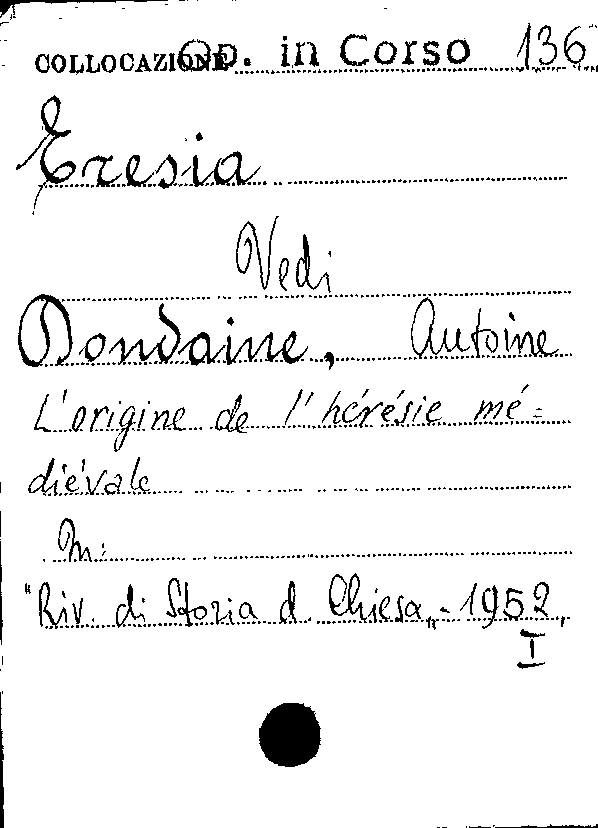 COLLOCAZIONE OD. in Corso 136
Eresia
Vedi
Dondaine, Antoine
L'origine de l'hérésie mé=
diévale
In:
"Riv. di Storia d. Chiesa„ - 1952,
I